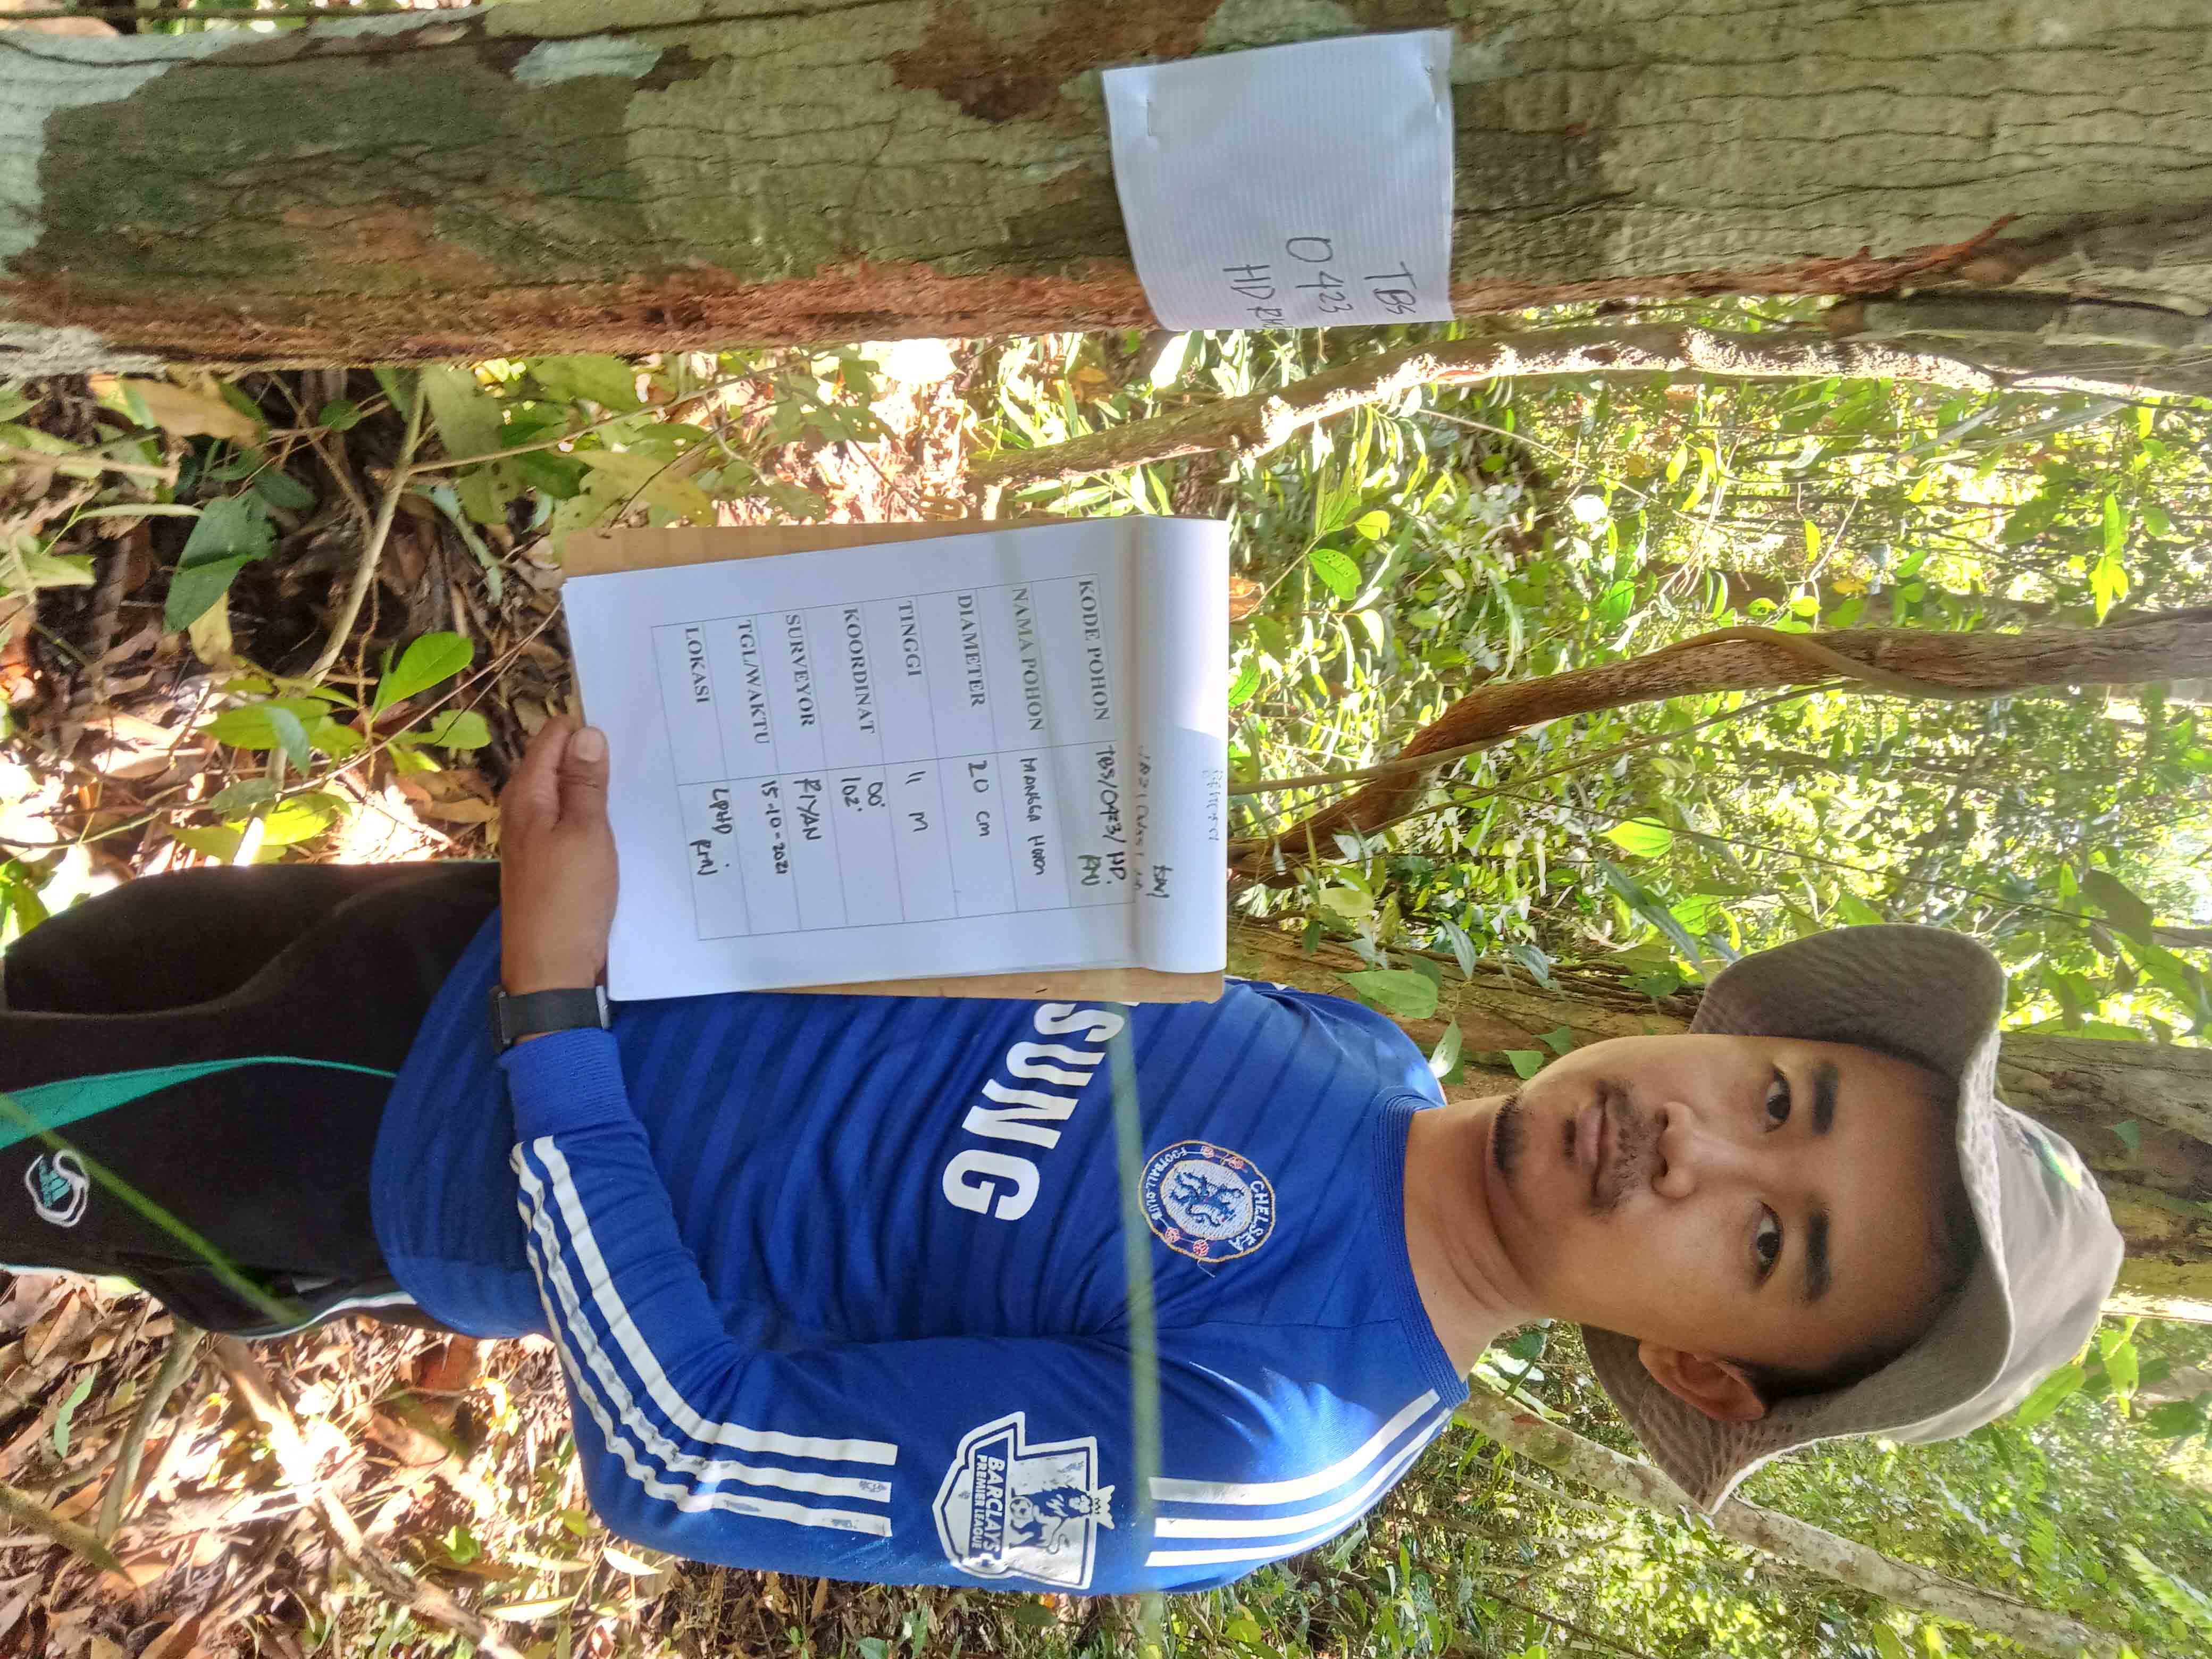 TBS
0423
HD
KODE POHON TBS/0423/HD.
NAMA POHON MANGGA HOON
DIAMETER 20 cm
TINGGI 11 m
KOORDINAT 00°
102°
SURVEYOR RIYAN
TGL/WAKTU 15-10-2021
LOKASI LPHD
SUNG
CHELSEA
FOOTBALL CLUB
BARCLAYS
PREMIER LEAGUE